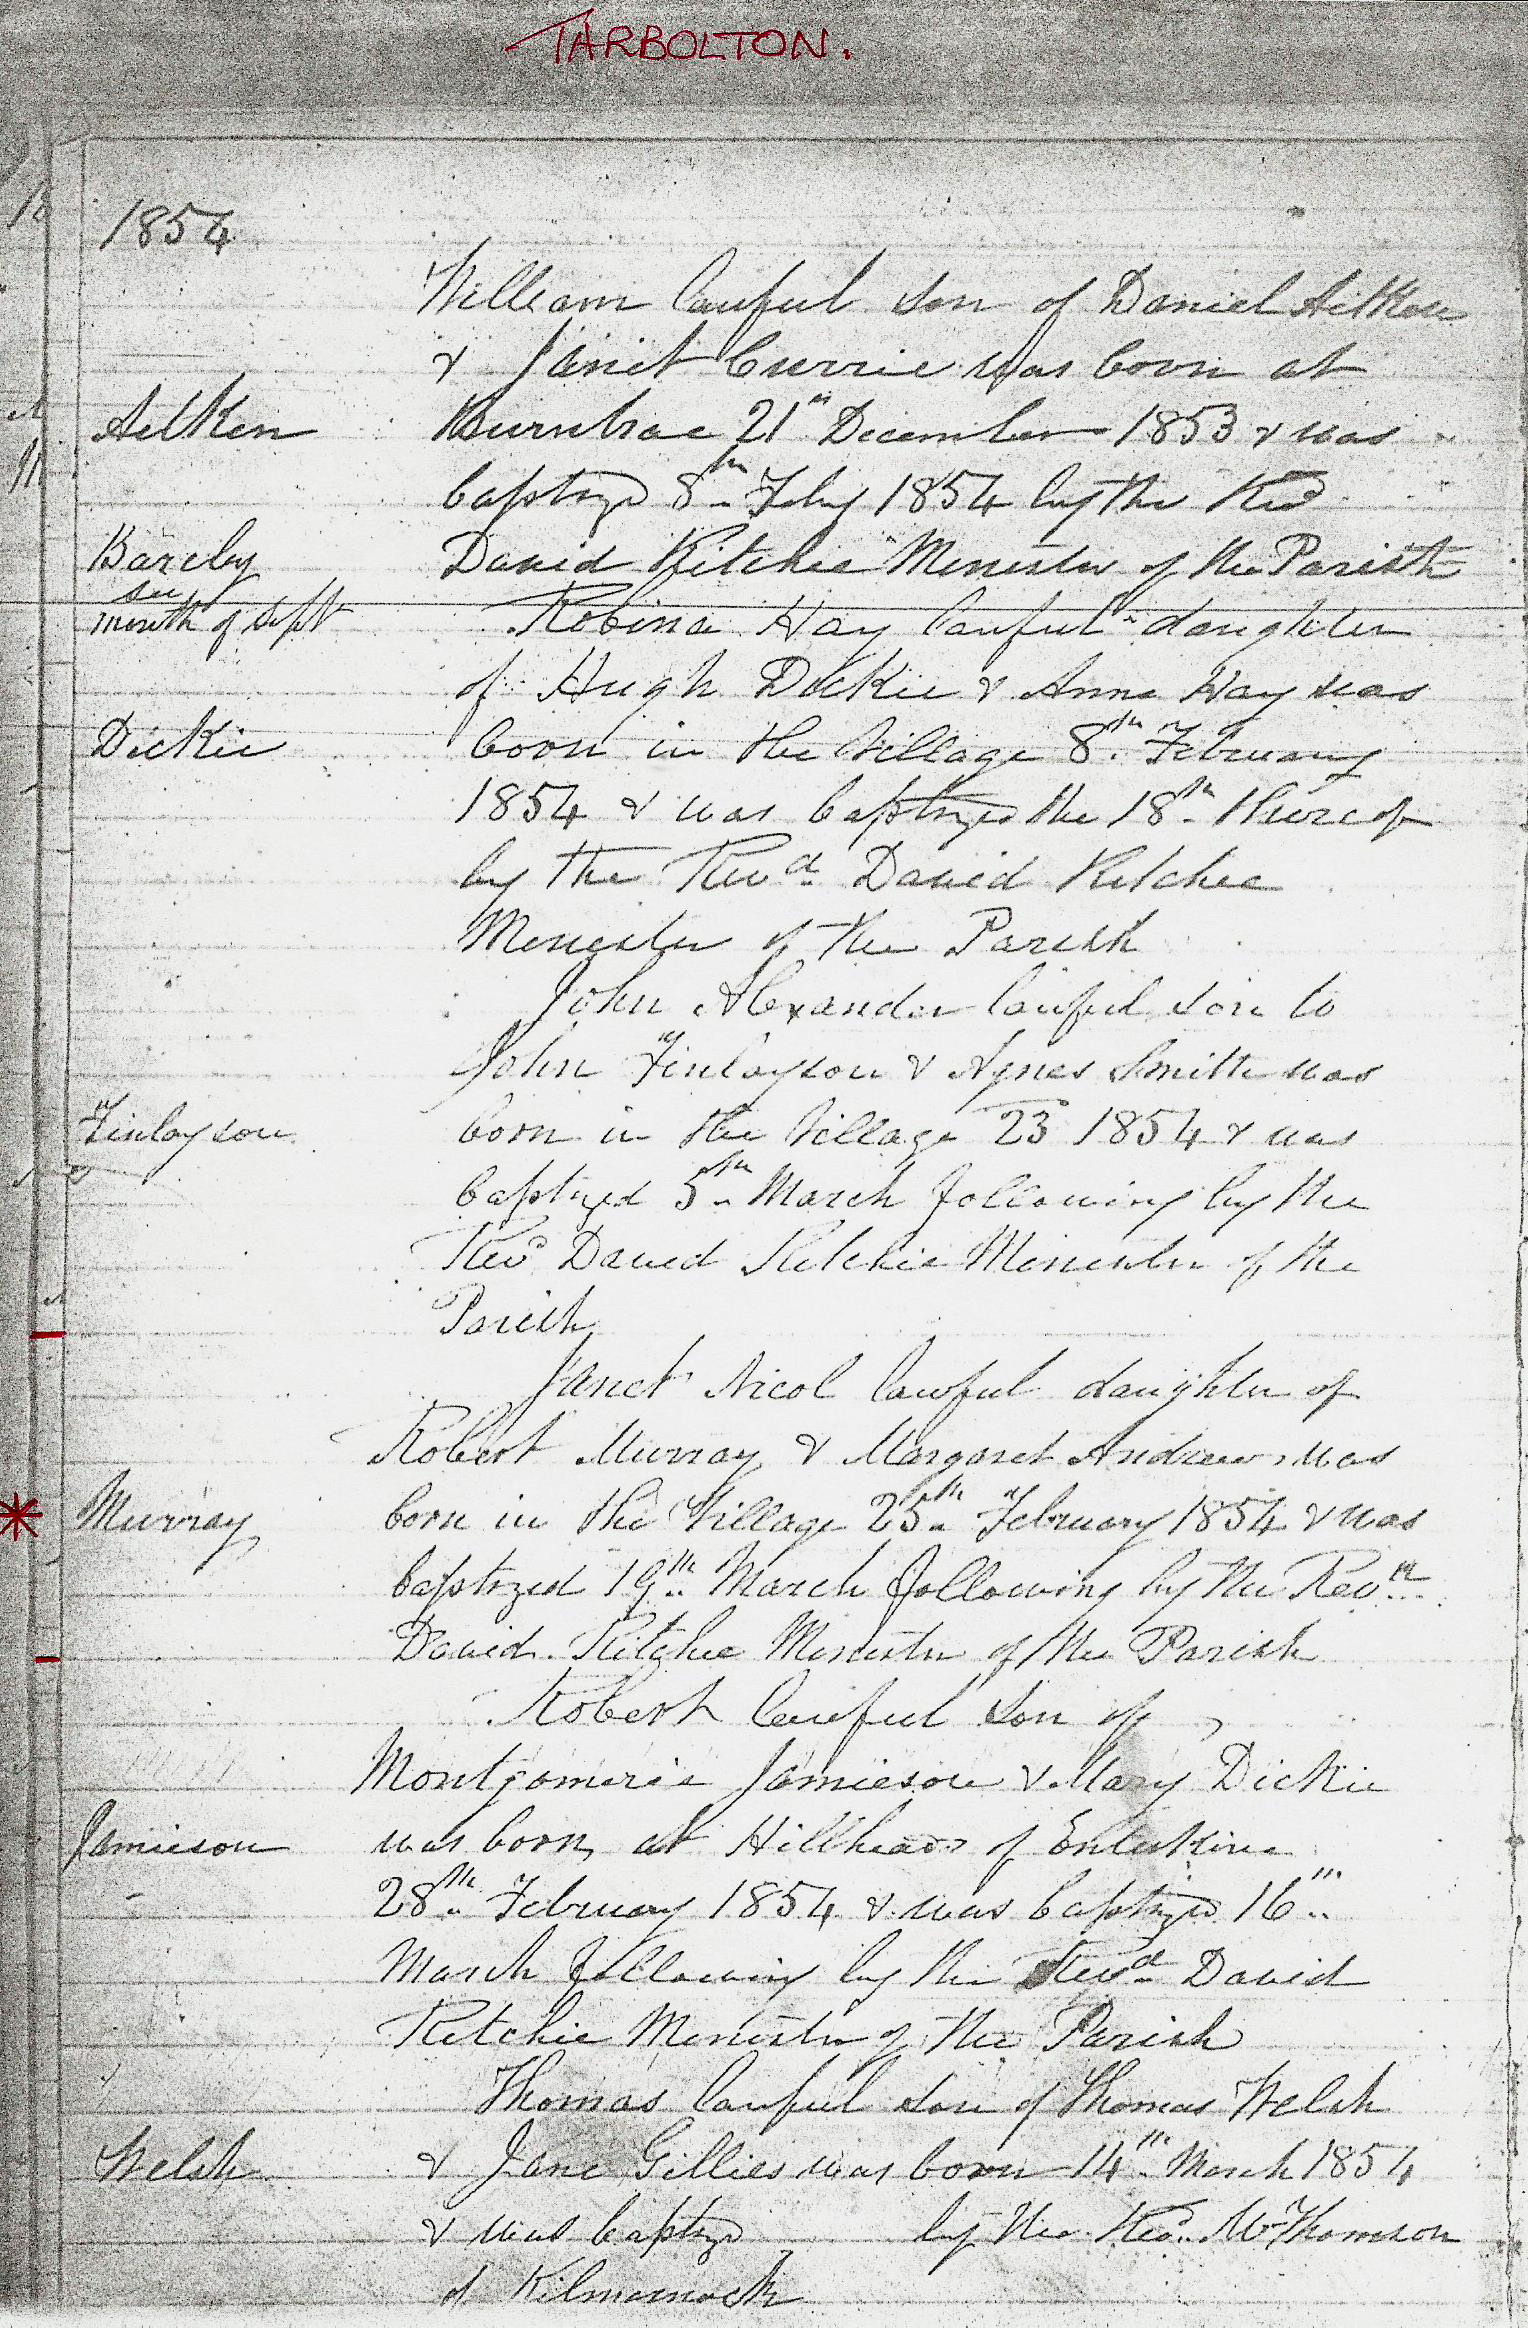 TARBOLTON.
1854
William lawful son of Daniel Aitken
& Janet Currie was born at
Aitken Burnbrae 21st December 1853 & was
baptized 8th Feby 1854 by the Revd
Barclay David Ritchie Minister of the Parish
see
month of Sept Robina Hay lawful daughter
of Hugh Dickie & Anna Hay was
Dickie born in the Village 8th February
1854 & was baptized the 18th thereof
by the Revd David Ritchie
Minister of the Parish
John Alexander lawful son to
John Finlayson & Agnes Smith was
Finlayson born in the Village 23 1854 & was
baptized 5th March following by the
Revd David Ritchie Minister of the
Parish
Janet Nicol lawful daughter of
Robert Murray & Margaret Andrew was
Murray born in the Village 25th February 1854 & was
baptized 19th March following by the Revd
David Ritchie Minister of the Parish
Robert lawful son of
Montgomerie Jamieson & Mary Dickie
Jamieson was born at Hillhead of Enterkine
28th February 1854 & was baptized 16th
March following by the Revd David
Ritchie Minister of the Parish
Thomas lawful son of Thomas Welsh
Welsh & Jane Gillies was born 14th March 1854
& was baptzd by the Revd Mr Thomson
of Kilmarnock